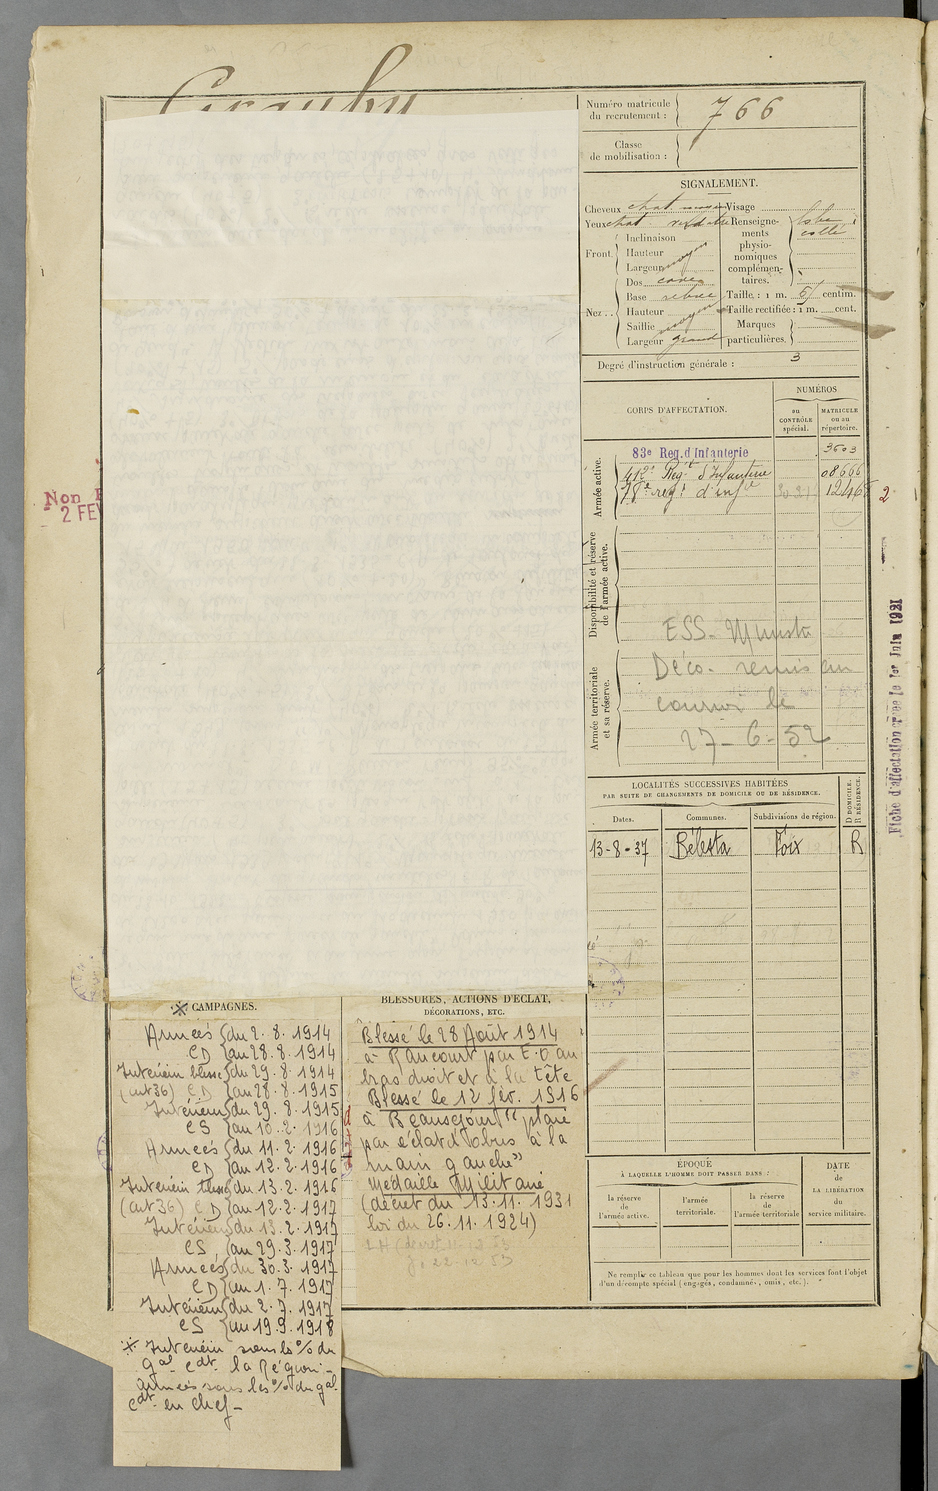 Numéro matricule
du recrutement :
766
Classe
de mobilisation :
SIGNALEMENT.
Cheveux chat.
Yeux chat.
Front.
Inclinaison
Hauteur
Largeur moyen
Nez . .
Dos cave
Base relevée
Hauteur
Saillie moyen
Largeur grand
Visage
Renseigne-
ments
physio-
nomiques
complémen-
taires.
lobe
collé
Taille : 1 m. centim.
Taille rectifiée : 1 m. cent.
Marques
particulières.
Degré d'instruction générale : 3
CORPS D'AFFECTATION.
NUMÉROS
au
CONTRÔLE
spécial.
MATRICULE
ou au
répertoire.
Armée active.
83e Reg. d'Infanterie 3603
412e Regt d'Infanterie 08666
78e regt d'infie
Disponibilité et réserve
de l'armée active.
Armée territoriale
et sa réserve.
Déco. remis
courrier de
27-6-52
Non
2 FEV
2
Fiche d'affectation créée le 1er Juin 1921
LOCALITÉS SUCCESSIVES HABITÉES
PAR SUITE DE CHANGEMENTS DE DOMICILE OU DE RÉSIDENCE.
Dates.
Communes.
Subdivisions de région.
D DOMICILE.
R RÉSIDENCE.
13-8-37 Bélesta Foix R
ÉPOQUE
À LAQUELLE L'HOMME DOIT PASSER DANS :
la réserve
de
l'armée active.
l'armée
territoriale.
la réserve
de
l'armée territoriale
DATE
de
LA LIBÉRATION
du
service militaire.
Ne remplir ce tableau que pour les hommes dont les services font l'objet
d'un décompte spécial (engagés, condamnés, omis, etc.).
CAMPAGNES.
Armées du 2.8.1914
CD au 28.8.1914
Intérieur blessé du 29.8.1914
(art 36) CD au 28.8.1915
Intérieur du 29.8.1915
CS au 10.2.1916
Armées du 11.2.1916
CD au 12.2.1916
Intérieur blessé du 13.2.1916
(art 36) CD au 12.2.1917
Intérieur du 13.2.1917
CS au 29.3.1917
Armées du 30.3.1917
CD au 1.7.1917
Intérieur du 2.7.1917
CS au 19.9.1918
※ Intérieur sous les % du
gal cdt la Région -
armées sous les % du gal
cdt en chef -
BLESSURES, ACTIONS D'ÉCLAT,
DÉCORATIONS, ETC.
Blessé le 28 Août 1914
à Rancourt par E.O au
bras droit et à la tête
Blessé le 12 fév. 1916
à Beauséjour "plaie
par éclat d'obus à la
main gauche"
Médaille Militaire
(décret du 13.11.1931
loi du 26.11.1924)